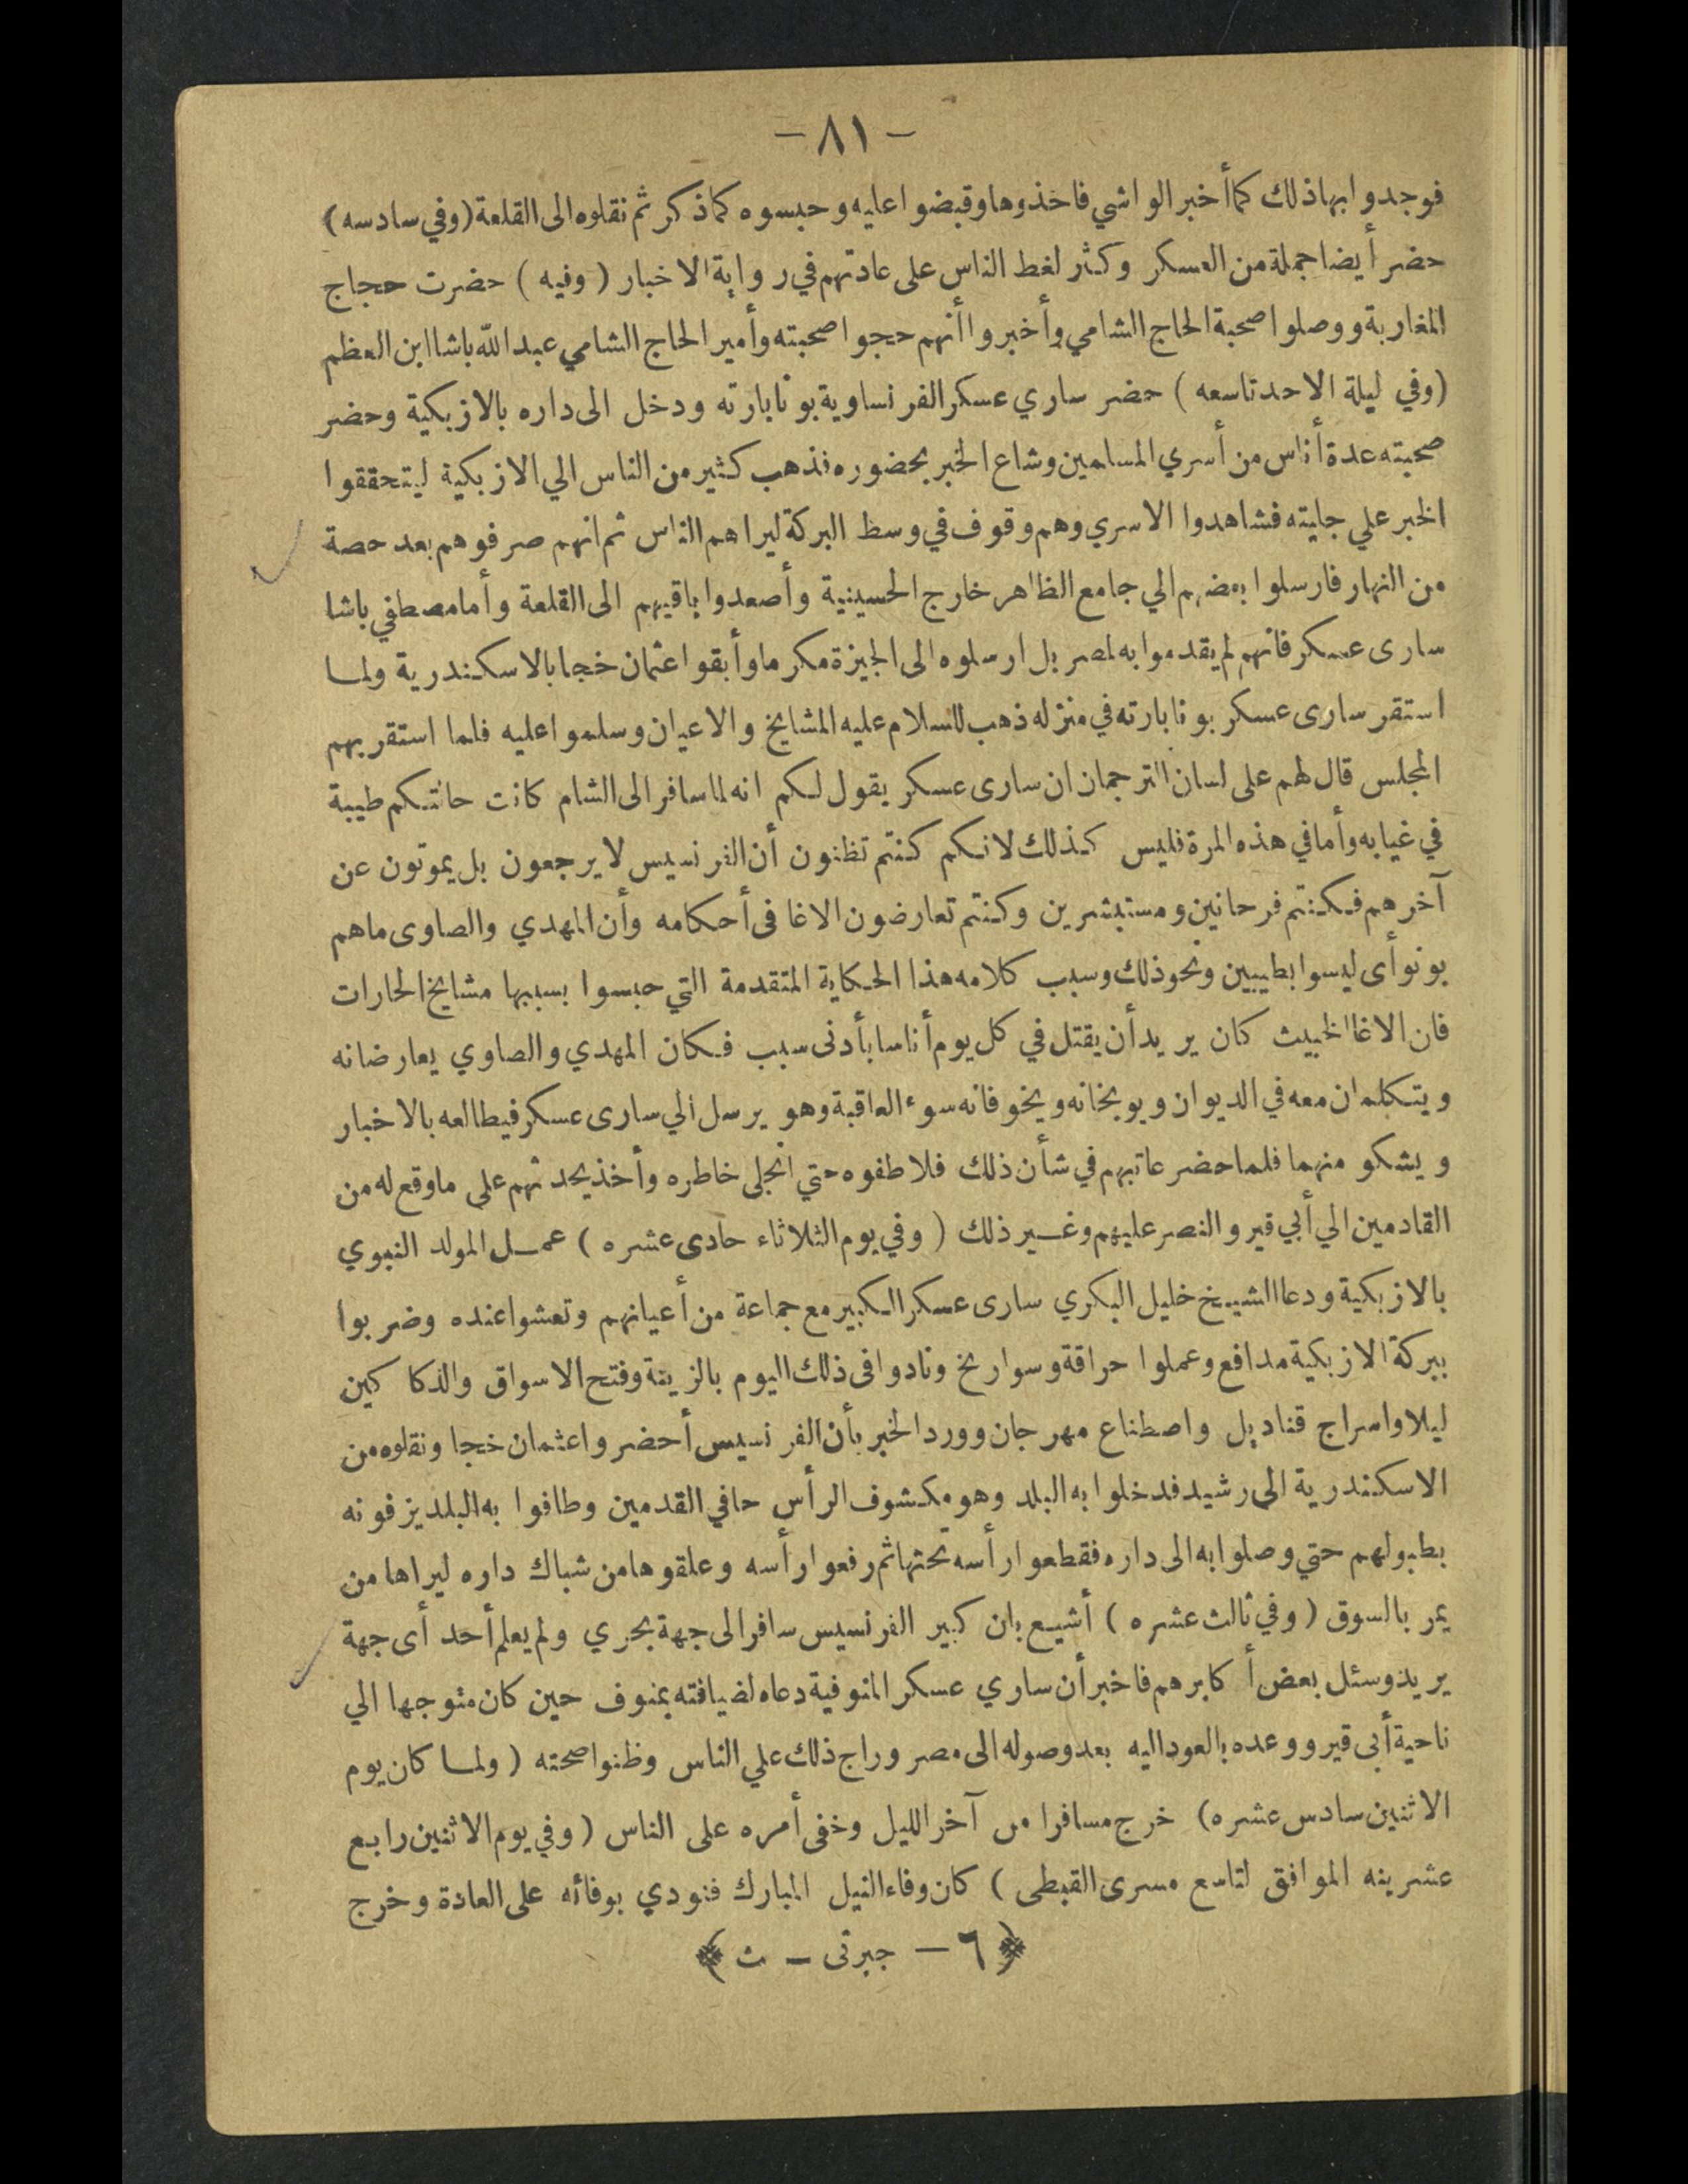 – ٨١ –
فوجدوا بها ذلك كما أخبر الواشي فاخذوها وقبضوا عليه وحبسوه كما ذكر ثم نقلوه الى القلعة (وفي سادسه)
حضر أيضا جملة من العسكر وكثر لغط الناس على عادتهم في رواية الاخبار ( وفيه ) حضرت حجاج
المغاربة ووصلوا صحبة الحاج الشامي وأخبروا أنهم حجوا صحبته وأمير الحاج الشامي عبد الله باشا ابن العظم
(وفي ليلة الاحد تاسعه ) حضر ساري عسكر الفرنساوية بونابارته ودخل الى داره بالازبكية وحضر
صحبته عدة أناس من أسري المسلمين وشاع الخبر بحضوره فذهب كثير من الناس الي الازبكية ليتحققوا
الخبر علي جليته فشاهدوا الاسري وهم وقوف في وسط البركة ليراهم الناس ثم انهم صرفوهم بعد حصة
من النهار فارسلوا بعضهم الي جامع الظاهر خارج الحسينية وأصعدوا باقيهم الى القلعة وأما مصطفي باشا
سارى عسكر فانهم لم يقدموا به لمصر بل ارسلوه الى الجيزة مكرما وأبقوا عثمان خجا بالاسكندرية ولما
استقر سارى عسكر بونابارته في منزله ذهب للسلام عليه المشايخ والاعيان وسلموا عليه فلما استقر بهم
المجلس قال لهم على لسان الترجمان ان سارى عسكر يقول لكم انه لما سافر الى الشام كانت حالتكم طيبة
في غيابه وأما في هذه المرة فليس كذلك لانكم كنتم تظنون أن الفرنسيس لا يرجعون بل يموتون عن
آخرهم فكنتم فرحانين ومستبشرين وكنتم تعارضون الاغا فى أحكامه وأن المهدي والصاوى ماهم
بونو أى ليسوا بطيبين ونحو ذلك وسبب كلامه هذا الحكاية المتقدمة التي حبسوا بسببها مشايخ الحارات
فان الاغا الخبيث كان يريد أن يقتل في كل يوم أناسا بأدنى سبب فكان المهدي والصاوي يعارضانه
ويتكلمان معه في الديوان ويوبخانه ويخوفانه سوء العاقبة وهو يرسل الي سارى عسكر فيطالعه بالاخبار
ويشكو منهما فلما حضر عاتبهم في شأن ذلك فلاطفوه حتي انجلى خاطره وأخذ يحدثهم على ما وقع له من
القادمين الي أبي قير والنصر عليهم وغير ذلك ( وفي يوم الثلاثاء حادى عشره ) عمل المولد النبوي
بالازبكية ودعا الشيخ خليل البكري سارى عسكر الكبير مع جماعة من أعيانهم وتعشوا عنده وضربوا
ببركة الازبكية مدافع وعملوا حراقة وسواريخ ونادوا فى ذلك اليوم بالزينة وفتح الاسواق والدكاكين
ليلا واسراج قناديل واصطناع مهرجان وورد الخبر بأن الفرنسيس أحضروا عثمان خجا ونقلوه من
الاسكندرية الى رشيد فدخلوا به البلد وهو مكشوف الرأس حافي القدمين وطافوا به البلد يزفونه
بطبولهم حتي وصلوا به الى داره فقطعوا رأسه تحتها ثم رفعوا رأسه وعلقوها من شباك داره ليراها من
يمر بالسوق ( وفي ثالث عشره ) أشيع بان كبير الفرنسيس سافر الى جهة بحري ولم يعلم أحد أى جهة
يريد وسئل بعض أكابرهم فاخبر أن ساري عسكر المنوفية دعاه لضيافته بمنوف حين كان متوجها الي
ناحية أبى قير ووعده بالعود اليه بعد وصوله الى مصر وراج ذلك علي الناس وظنوا صحته ( ولما كان يوم
الاثنين سادس عشره) خرج مسافرا من آخر الليل وخفى أمره على الناس ( وفي يوم الاثنين رابع
عشرينه الموافق لتاسع مسرى القبطى ) كان وفاء النيل المبارك فنودي بوفائه على العادة وخرج
﴿ ٦ – جبرتى – ث ﴾